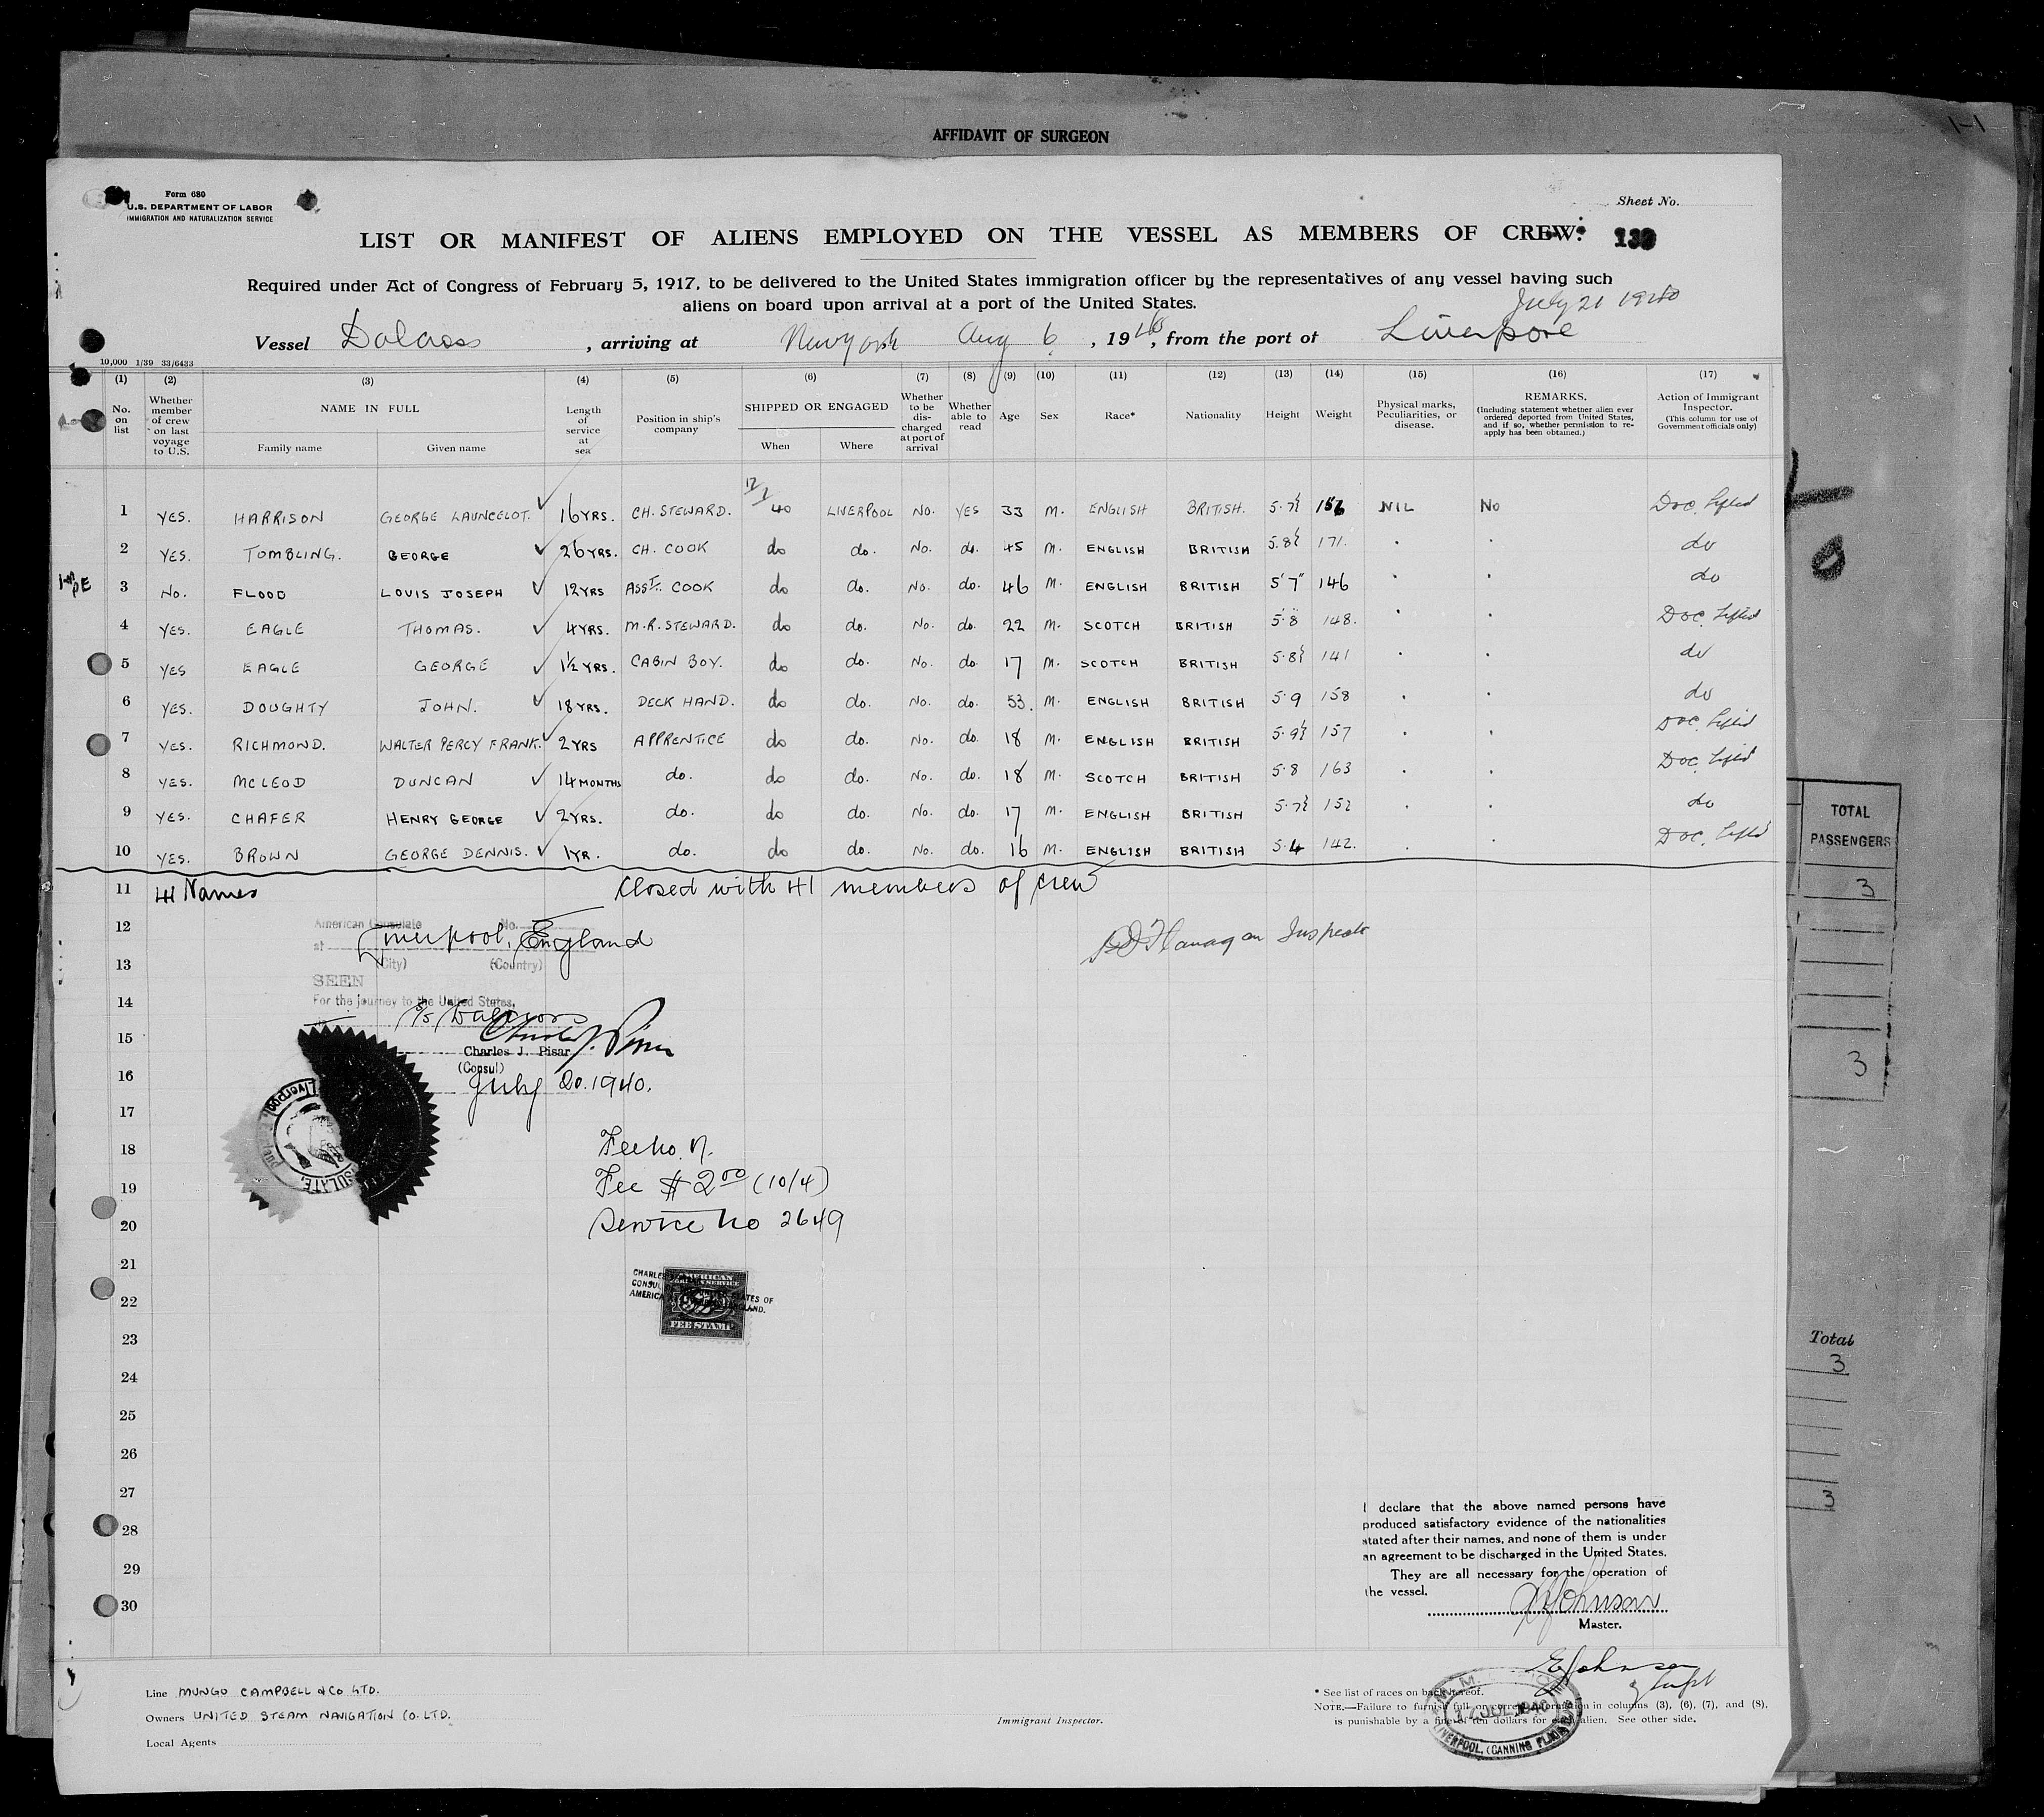 1-1
AFFIDAVIT OF SURGEON
Form 680
U.S. DEPARTMENT OF LABOR
IMMIGRATION AND NATURALIZATION SERVICE
Sheet No.
LIST OR MANIFEST OF ALIENS EMPLOYED ON THE VESSEL AS MEMBERS OF CREW.
Required under Act of Congress of February 5, 1917, to be delivered to the United States immigration officer by the representatives of any vessel having such
aliens on board upon arrival at a port of the United States.
July 21 1940
Vessel Dalcross, arriving at New York Aug 6, 1940, from the port of Liverpool
10,000 1/39 33/6433
(1) (2) (3) (4) (5) (6) (7) (8) (9) (10) (11) (12) (13) (14) (15) (16) (17)
No. on list Whether member of crew on last voyage to U.S. NAME IN FULL Family name Given name Length of service at sea Position in ship's company SHIPPED OR ENGAGED When Where Whether to be discharged at port of arrival Whether able to read Age Sex Race* Nationality Height Weight Physical marks, Peculiarities, or disease. REMARKS. (Including statement whether alien ever ordered deported from United States, and if so, whether permission to re-apply has been obtained.) Action of Immigrant Inspector. (This column for use of Government officials only)
1 YES. HARRISON GEORGE LAUNCELOT. 16 YRS. CH. STEWARD. 17/7 40 LIVERPOOL NO. YES 33 M. ENGLISH BRITISH. 5.7½ 156 NIL No Doc. Lifted
2 YES. TOMBLING. GEORGE 26 YRS. CH. COOK do do. No. do. 45 M. ENGLISH BRITISH 5.8½ 171. do
3 No. FLOOD LOUIS JOSEPH 12 YRS ASST. COOK do do. No. do. 46 M. ENGLISH BRITISH 5'7" 146 do
4 YES. EAGLE THOMAS. 4 YRS. M.R. STEWARD. do do. No. do. 22 M. SCOTCH BRITISH 5.8 148. Doc. Lifted
5 YES EAGLE GEORGE 1½ YRS. CABIN BOY. do do. No. do. 17 M. SCOTCH BRITISH 5.8½ 141 do
6 YES. DOUGHTY JOHN. 18 YRS. DECK HAND. do do. No. do. 53. M. ENGLISH BRITISH 5.9 158 do
7 YES. RICHMOND. WALTER PERCY FRANK. 2 YRS APPRENTICE do do. No. do. 18 M. ENGLISH BRITISH 5.9½ 157 Doc. Lifted
8 YES. MCLEOD DUNCAN 14 MONTHS do. do do. No. do. 18 M. SCOTCH BRITISH 5.8 163 Doc. Lifted
9 YES. CHAFER HENRY GEORGE 2 YRS. do. do do. No. do. 17 M. ENGLISH BRITISH 5.7½ 152 do
10 YES. BROWN GEORGE DENNIS. 1 YR. do. do do. No. do. 16 M. ENGLISH BRITISH 5.4 142. Doc. Lifted
11 41 Names Closed with 41 members of crew
12 American Consulate No.
at Liverpool, England
Flanagan Inspector
13 (City) (Country)
SEEN
14 For the journey to the United States,
S/S Dalcross
15 Charles J. Pisar
Charles J. Pisar
(Consul)
16 July 20. 1940.
17
18 Fee No.
19 Fee $2.00 (10/4)
20 Service No 2649
21
AMERICAN
FOREIGN SERVICE
22
FEE STAMP
23
24
25
26
27
28
29
30
I declare that the above named persons have
produced satisfactory evidence of the nationalities
stated after their names, and none of them is under
an agreement to be discharged in the United States.
They are all necessary for the operation of
the vessel.
Johnson
Master.
Johnson
Line MUNGO CAMPBELL & CO LTD.
Owners UNITED STEAM NAVIGATION CO. LTD.
Local Agents
Immigrant Inspector.
* See list of races on back hereof.
NOTE.—Failure to furnish full or correct information in columns (3), (6), (7), and (8),
is punishable by a fine of ten dollars for each alien. See other side.
17 JUL 1940
LIVERPOOL, (CANNING PLACE)
TOTAL
PASSENGERS
3
3
Total
3
3